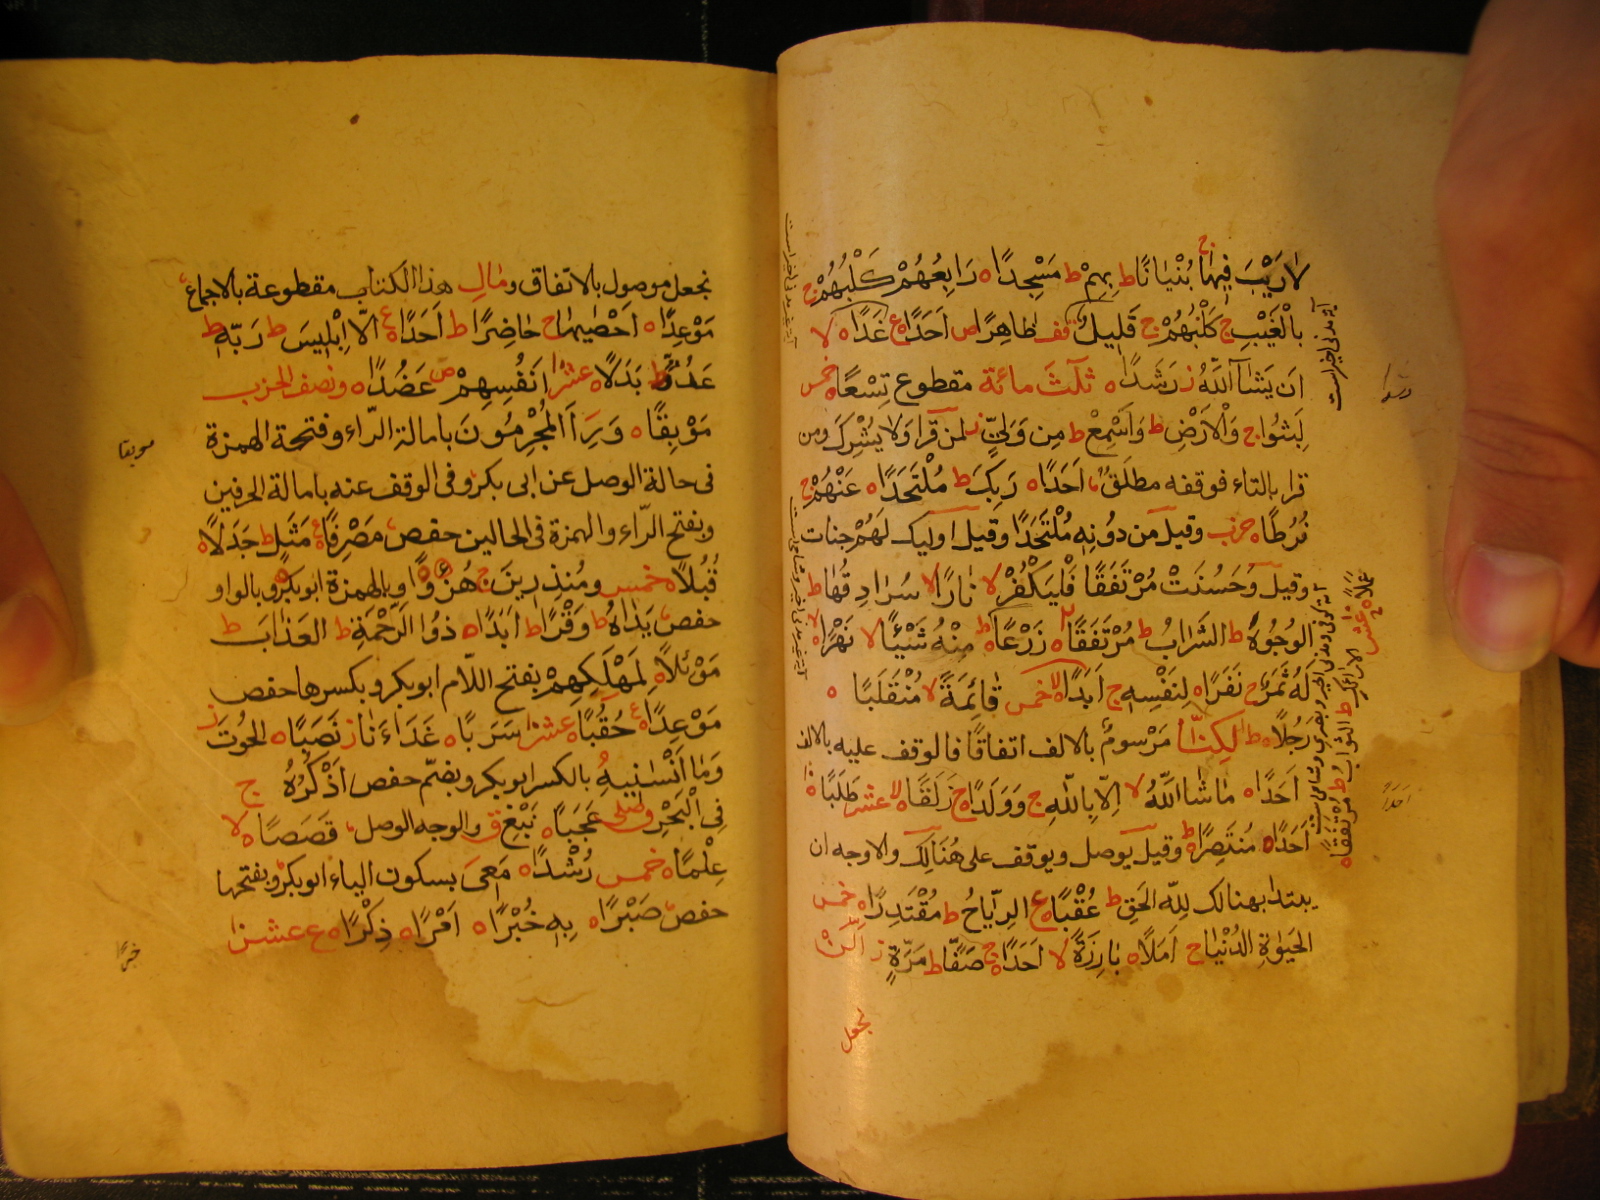 لَا رَيْبَ فِيهَا ج بُنْيَانًا ط بِهِمْ ط مَسْجِدًا ه رَابِعُهُمْ كَلْبُهُمْ ج
بِالْغَيْبِ ج كَلْبُهُمْ ج قَلِيلٌ قف ظَاهِرًا ص اَحَدًا ه ع غَدًا ه لا
اَنْ يَشَاۤءَ اللّٰهُ ز رَشَدًا ه ثَلٰثَ مِائَة مقطوع تِسْعًا ه خمس
لَبِثُوا ج وَالْاَرْضِ ط وَاَسْمِعْ ط مِن وَلِيٍّ ز لمن قرا وَلَا يُشْرِكُ ومن
قرا بالتاء فوقفه مطلق اَحَدًا ه رَبِّكَ ط مُلْتَحَدًا ه عَنْهُمْ ج
فُرُطًا ه حزب وقيل مِن دُونِهٖ مُلْتَحَدًا وقيل اولٰىك لَهُمْ جنات
وقيل وَحَسُنَتْ مُرْتَفَقًا فَلْيَكْفُرْ لا نَارًا لا سُرَادِقُهَا ط
الْوُجُوهَ ط الشَّرَابُ ط مُرْتَفَقًا ه زَرْعًا ه ط مِنْهُ شَيْئًا لا نَهَرًا ه لا
لَهُ ثَمَرٌ ج نَفَرًا ه لِنَفْسِهٖ ج اَبَدًا ه لا خمس قَائِمَةً لا مُنْقَلَبًا ه
رَجُلًا ه ط لٰكِنَّا مَرْسومٌ بالالف اتفاقًا فالوقف عليه بالالف
اَحَدًا ه مَا شَاۤءَ اللّٰهُ لا اِلَّا بِاللّٰهِ ج وَوَلَدًا ه ج زَلَقًا ه لا عشر طَلَبًا ه
اَحَدًا ه مُنْتَصِرًا ه ط وقيل يوصل ويوقف على هُنَالِكَ والاوجه ان
يبتدا بهنالك لِلّٰهِ الْحَقِّ ط عُقْبًا ه ع الرِّيَاحُ ط مُقْتَدِرًا ه خمس
الْحَيٰوةِ الدُّنْيَا ج اَمَلًا ه بَارِزَةً لا اَحَدًا ه ج صَفًّا ط مَرَّةٍ ز اَلَّنْ
نجعل
عَمَلًا ه ج عشر
الْاَرَاۤئِكِ ط الثَّوَابُ ط مُرْتَفَقًا ه
نجعل موصول بالاتفاق ومَالِ هٰذا الكتاب مقطوعة بالاجماع
مَوْعِدًا ه اَحْصٰيهَا ج حَاضِرًا ط اَحَدًا ه ع اِلَّا اِبْلِيسَ ط رَبِّهٖ ط
عَدُوٌّ ط بَدَلًا ه عشر اَنْفُسِهِمْ ص عَضُدًا ه ونصف الحزب
مَوْبِقًا ه وَرَاَ الْمُجْرِمُونَ بامالة الرّاء وفتحة الهمزة
فى حالة الوصل عن ابى بكر وفى الوقف عنه بامالة الحرفين
وبفتح الرّاء والهمزة فى الحالين حفص مَصْرِفًا ه ع مَثَلٍ ط جَدَلًا ه
قُبُلًا ه خمس ومُنذِرِينَ ج هُزُوًا ه وبالهمزة ابوبكر وبالواو
حفص يَدَاهُ ط وَقْرًا ط اَبَدًا ه ذُو الرَّحْمَةِ ط الْعَذَابَ ط
مَوْئِلًا ه لِمَهْلَكِهِمْ بفتح اللّام ابوبكر وبكسرها حفص
مَوْعِدًا ه ع حُقُبًا ه عشر سَرَبًا ه غَدَاۤءَنَا ز نَصَبًا ه الْحُوتَ ز
وَمَا اَنْسٰىنِيهُ بالكسر ابوبكر وبضمّ حفص اَذْكُرَهُ ج
فِى الْبَحْرِ وصلى عَجَبًا ه نَبْغِ ق والوجه الوصل قَصَصًا ه لا
عِلْمًا ه خمس رُشْدًا ه مَعِىَ بسكون الياء ابوبكر وبفتحها
حفص صَبْرًا ه بِهٖ خُبْرًا ه اَمْرًا ه ذِكْرًا ه ع عشر
موبقا
خبرًا